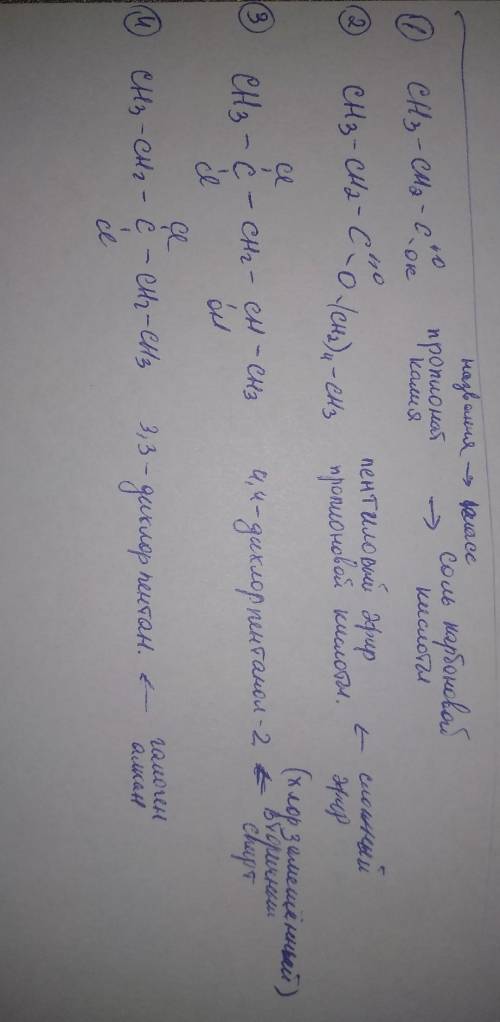 названия → класс
① CH3-CH2-C=O
-OK
пропионат калия → соль карбоновой кислоты
② CH3-CH2-C=O
-O-(CH2)4-CH3
пентиловый эфир пропионовой кислоты. ← сложный эфир
Cl
③ CH3-C-CH2-CH-CH3 4,4-дихлорпентанол-2 ← вторичный спирт
Cl OH
(хлорзамещённый)
Cl
④ CH3-CH2-C-CH2-CH3 3,3-дихлорпентан. ← галоген алкан
Cl